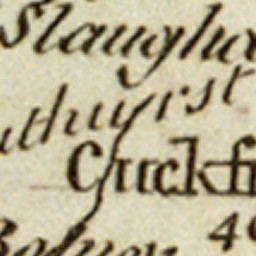 Slaugha
uthuyrst
Cuckfi
Bolney